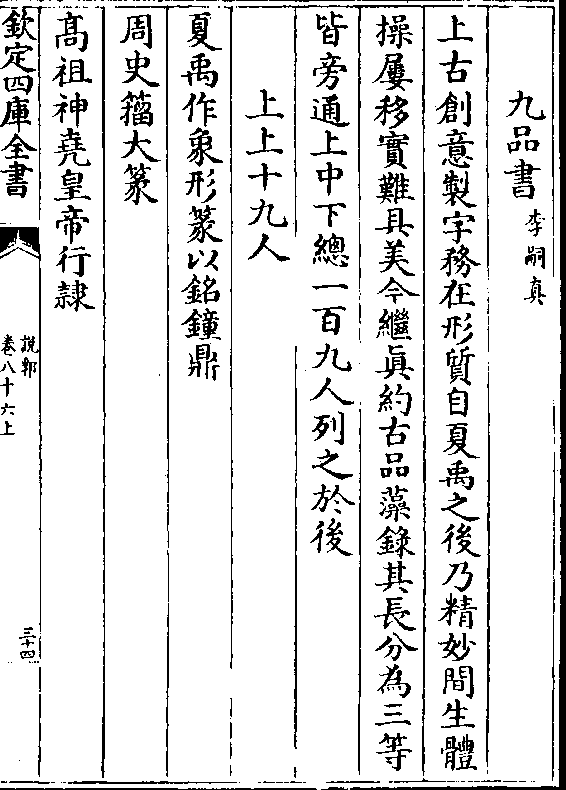 九品書李嗣真
上古創意製字務在形質自夏禹之後乃精妙間生體
操屢移實難具美今繼真約古品藻錄其長分為三等
皆旁通上中下總一百九人列之於後
上上十九人
夏禹作象形篆以銘鐘鼎
周史籀大篆
髙祖神堯皇帝行隷
欽定四庫全書
說郛
卷八十六上
三十四